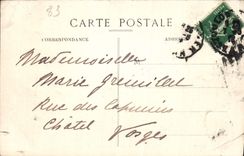 83
CARTE POSTALE
CORRESPONDANCE
Mademoiselle
Marie
Rue des Capucins
Châtel Vosges